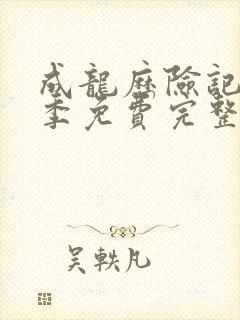 成龍历險記
季免費完整
吴軼凡